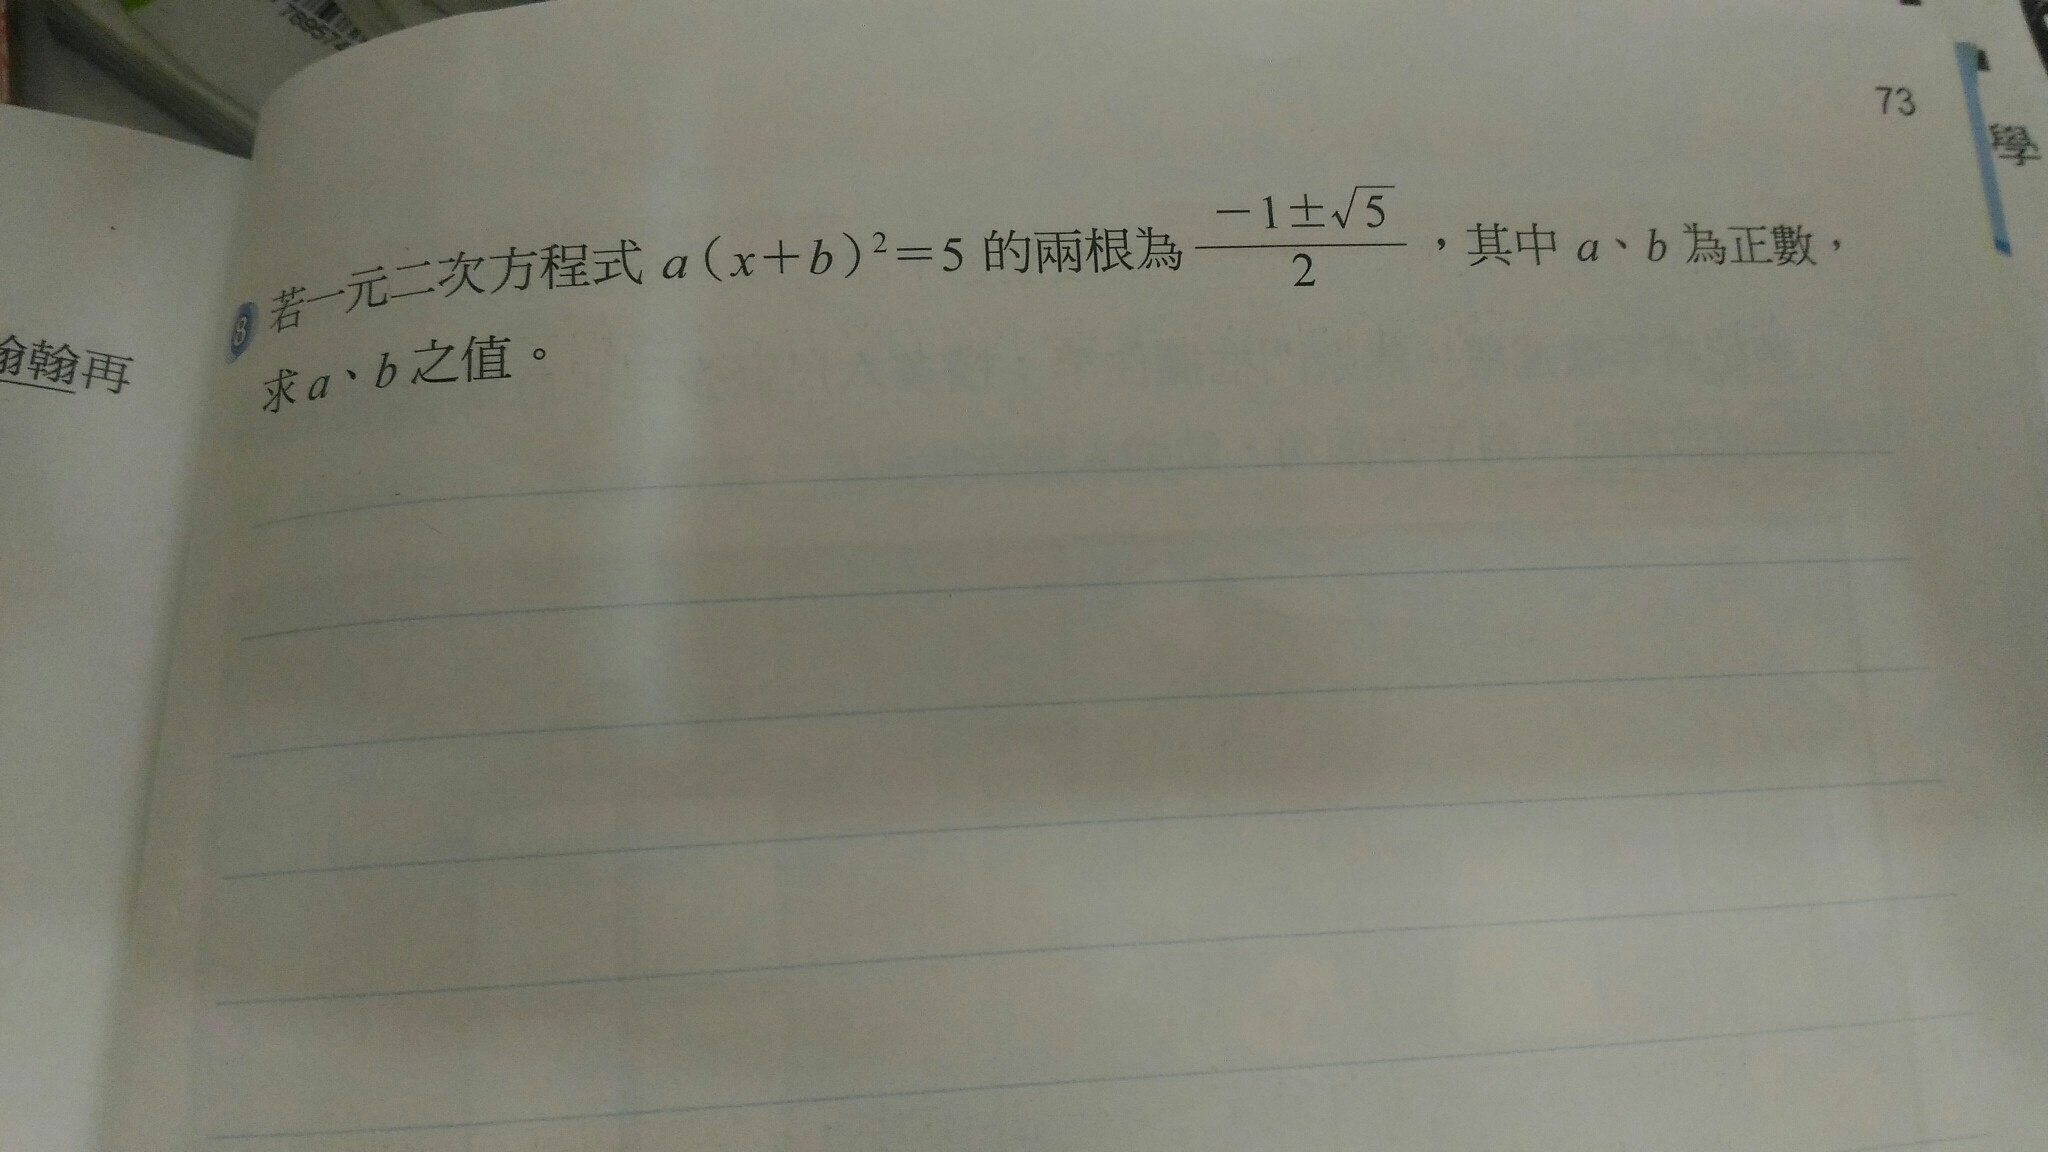 73
學
⑧ 若一元二次方程式 a(x+b)²=5 的兩根為 \frac{-1±√5}{2},其中 a、b 為正數,
求 a、b 之值。
翰再